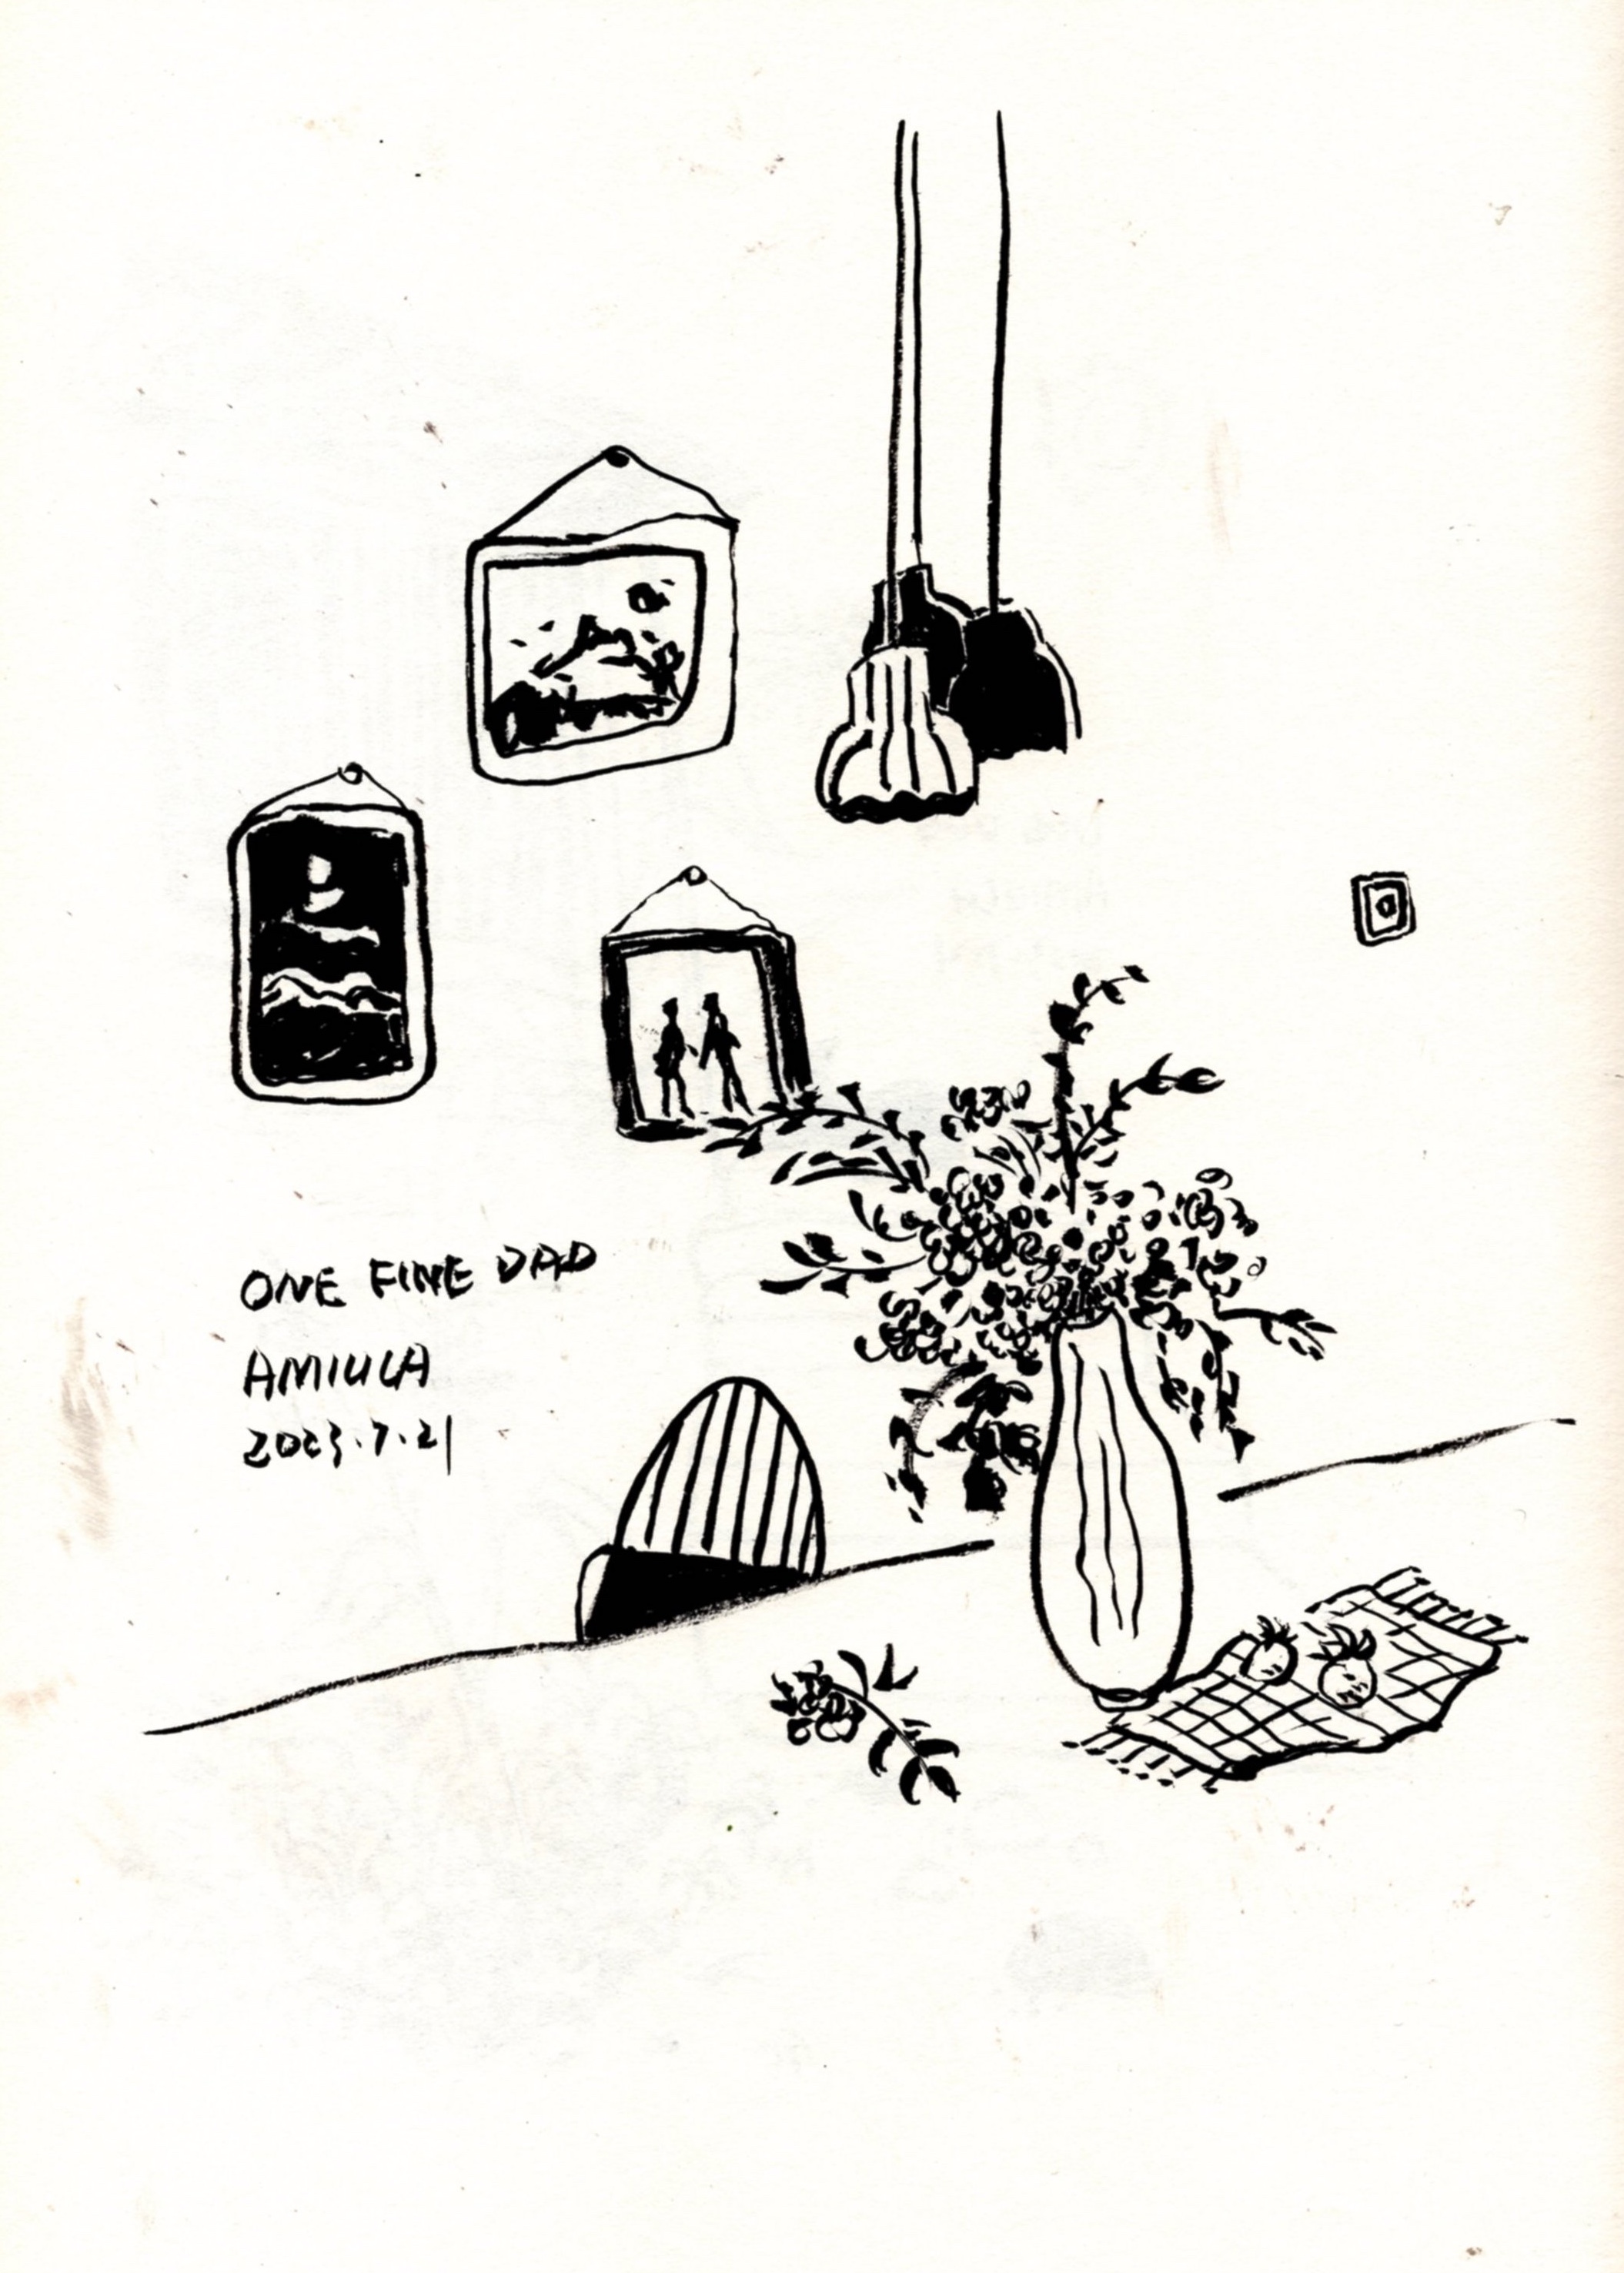 ONE FINE DAD
AMIULA
2023.7.21